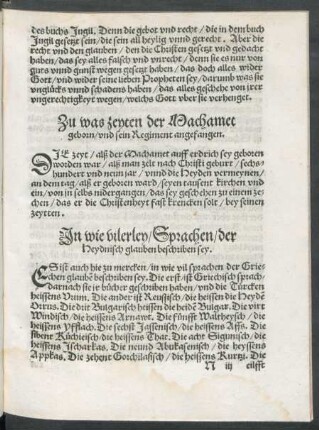 des buchs Ingil. Denn die gebot vnd recht / die in dem buch
Ingil gesetzt sein / die sein all heylig vnnd gerecht. Aber die
recht vnd den glauben / den die Christen gesetzt vnd gedacht
haben / das sey alles falsch vnd vnrecht / denn sie es nur von
guts vnnd gunst wegen gesetzt haben / das doch alles wider
Gott / vnd wider seine lieben Propheten sey / darumb was sie
vnglücks vnnd schadens haben / das alles geschehe von irer
vngerechtigkeyt wegen / welchs Gott vber sie verhenget.
Zu was zeyten der Machamet
geborn / vnd sein Regiment angefangen.
DIE zeyt / alß der Machamet auff erdrich sey geboren
worden war / alß man zelt nach Christi geburt / sechs
hundert vnd neun jar / vnnd die Heyden vermeynen /
an dem tag / alß er geboren ward / seyen tausent kirchen vnd
ein / von in selbs nidergangen / das sey geschehen zu einem zei
chen / das er die Christenheyt fast krencken solt / bey seinen
zeytten.
In wie vilerley / Sprachen / der
Heydnisch glauben beschriben sey.
ES ist auch hie zu mercken / in wie vil sprachen der Grie
chen glaube beschriben sey. Die erst ist Griechisch sprach
darnach sie ir bücher geschriben haben / vnd die Türcken
heissens Vrum. Die ander ist Reusisch / die heissen die Heyden
Orrus. Die drit Bulgarisch heissen die heiden Bulgar. Die virt
Windisch / die heissens Arnawt. Die fünfft Walcheysch / die
heissens Yfflach. Die sechst Jassenisch / die heissens Affs. Die
sibent Küchteisch / die heissens Thar. Die acht Sigunisch / die
heissens Ischarkas. Die neund Abukasenisch / die heyssens
Appkas. Die zehent Gorchilasisch / die heissens Kurtzi. Die
N iij eilfft